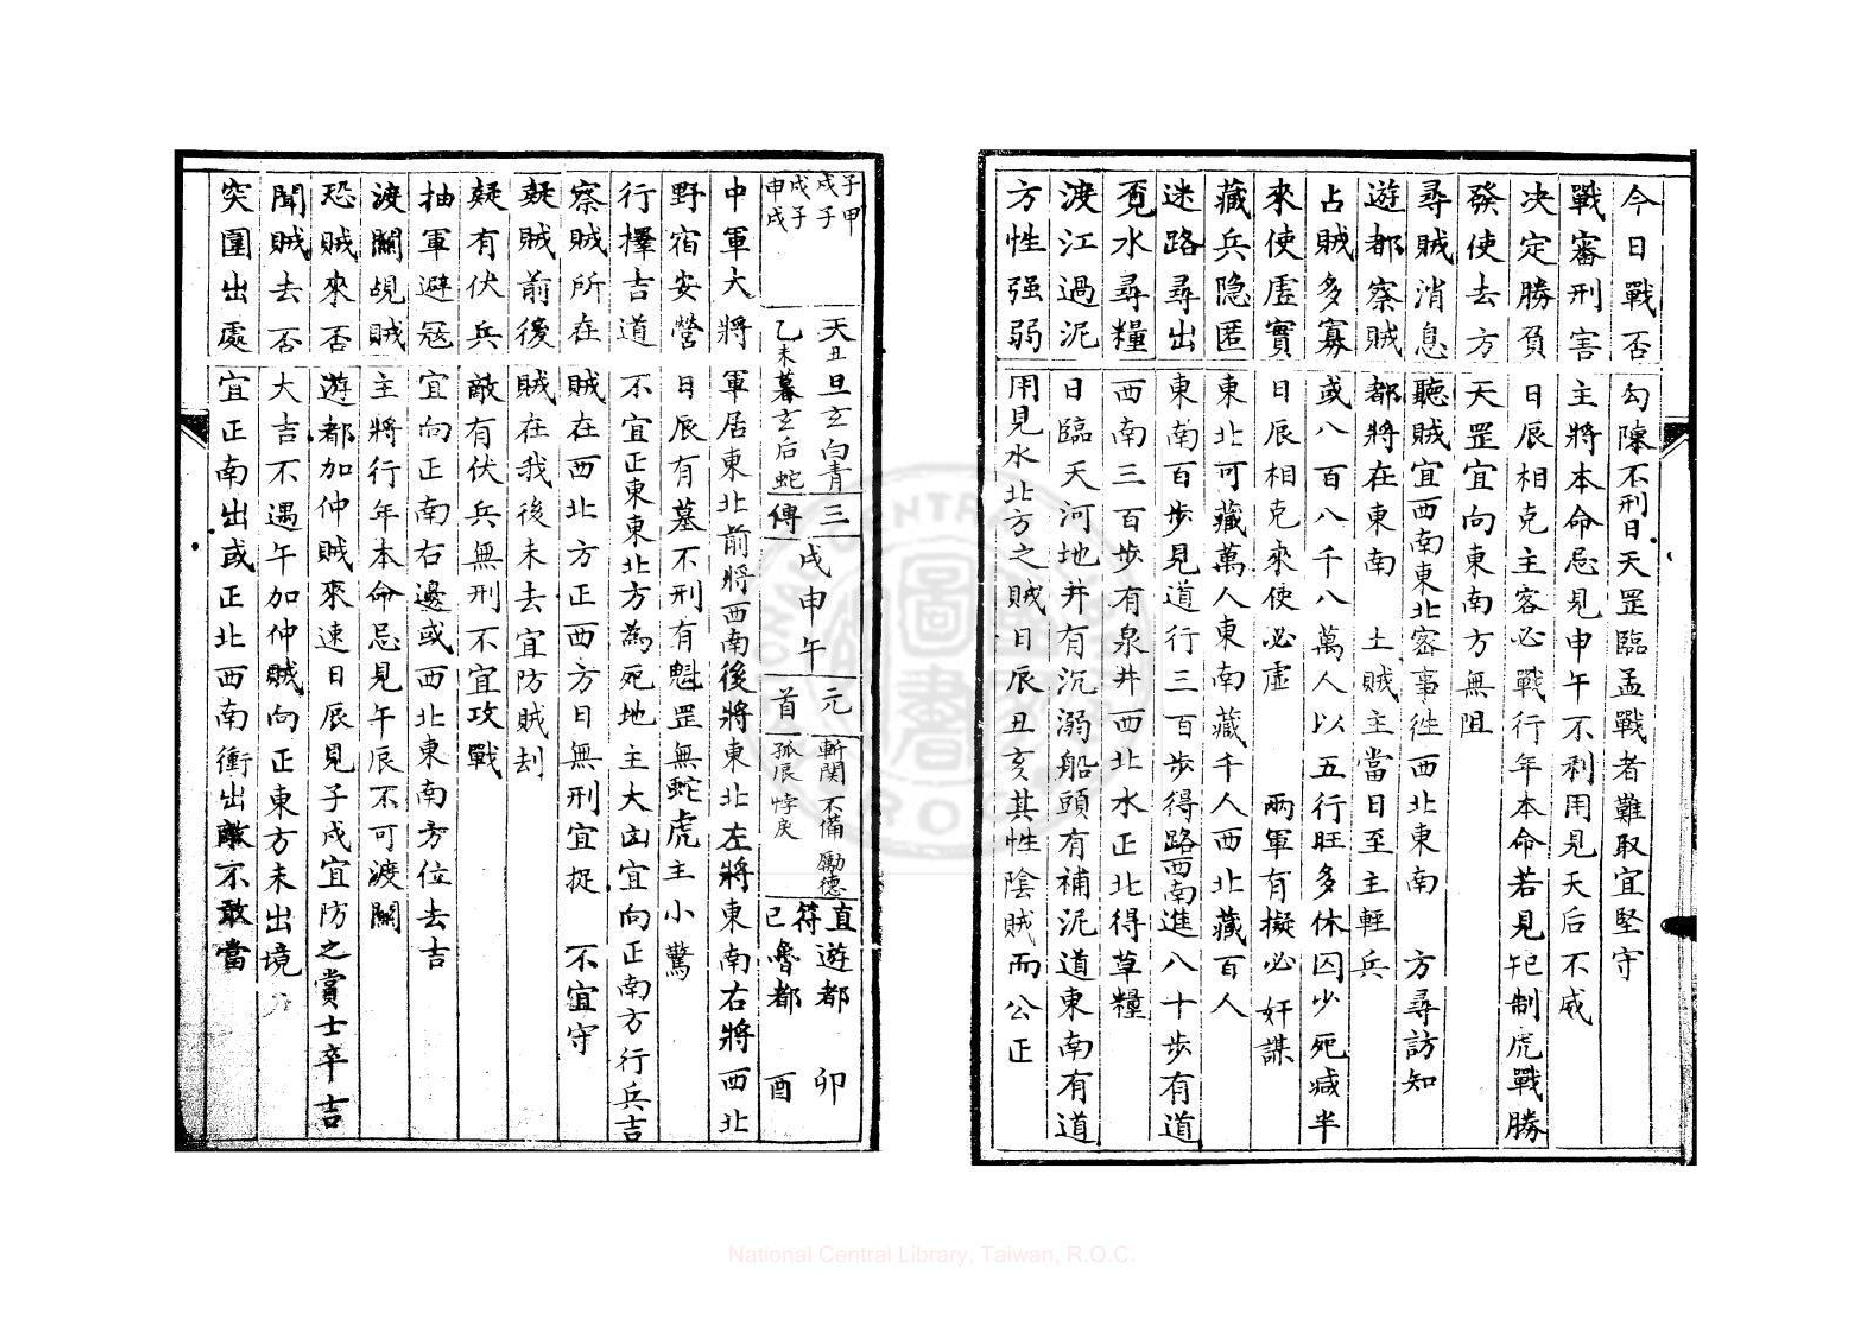 今日戰否 勾陳不刑日天罡臨孟戰者難取宜堅守
戰審刑害 主將本命忌見申午不利用見天后不威
決定勝負 日辰相克主客必戰行年本命若見制虎戰勝
發使去方 天罡宜向東南方無阻
尋賊消息 聽賊宜西南東北密事徃西北東南 方尋訪知
遊都察賊 都將在東南 土賊主當日至主輕兵
占賊多寡 或八百八千八萬人以五行旺多休囚少死减半
來使虛實 日辰相克來使必虛 兩軍有擬必奸謀
藏兵隐匿 東北可藏萬人東南藏千人西北藏百人
迷路尋出 東南百步見道行三百步得路西南進八十步有道
覓水尋糧 西南三百步有泉井西北水正北得草糧
渡江過泥 日臨天河地井有沉溺船頭有補泥道東南有道
方性强弱 用見水北方之賊日辰丑亥其性陰賊而公正
子甲
戌子
戌子
申戌
天丑旦玄白青
乙未暮玄后蛇
三傳
戌申午
元首
斬関 不備 勵德
孤辰 悖戾
直符己
遊都 卯
魯都 酉
中軍大將 軍居東北前將西南後將東北左將東南右將西北
野宿安營 日辰有墓不刑有魁罡無蛇虎主小驚
行擇吉道 不宜正東東北方為死地主大凶宜向正南方行兵吉
察賊所在 賊在西北方正西方日無刑宜捉 不宜守
疑賊前後 賊在我後未去宜防賊刦
疑有伏兵 敵有伏兵無刑不宜攻戰
抽軍避冦 宜向正南右邊或西北東南方位去吉
渡關覘賊 主將行年本命忌見午辰不可渡關
恐賊來否 遊都加仲賊來速日辰見子戌宜防之賞士卒吉
聞賊去否 大吉不遇午加仲賊向正東方未出境
突圍出處 宜正南出或正北西南衝出敵不敢當
National Central Library, Taiwan, R.O.C.